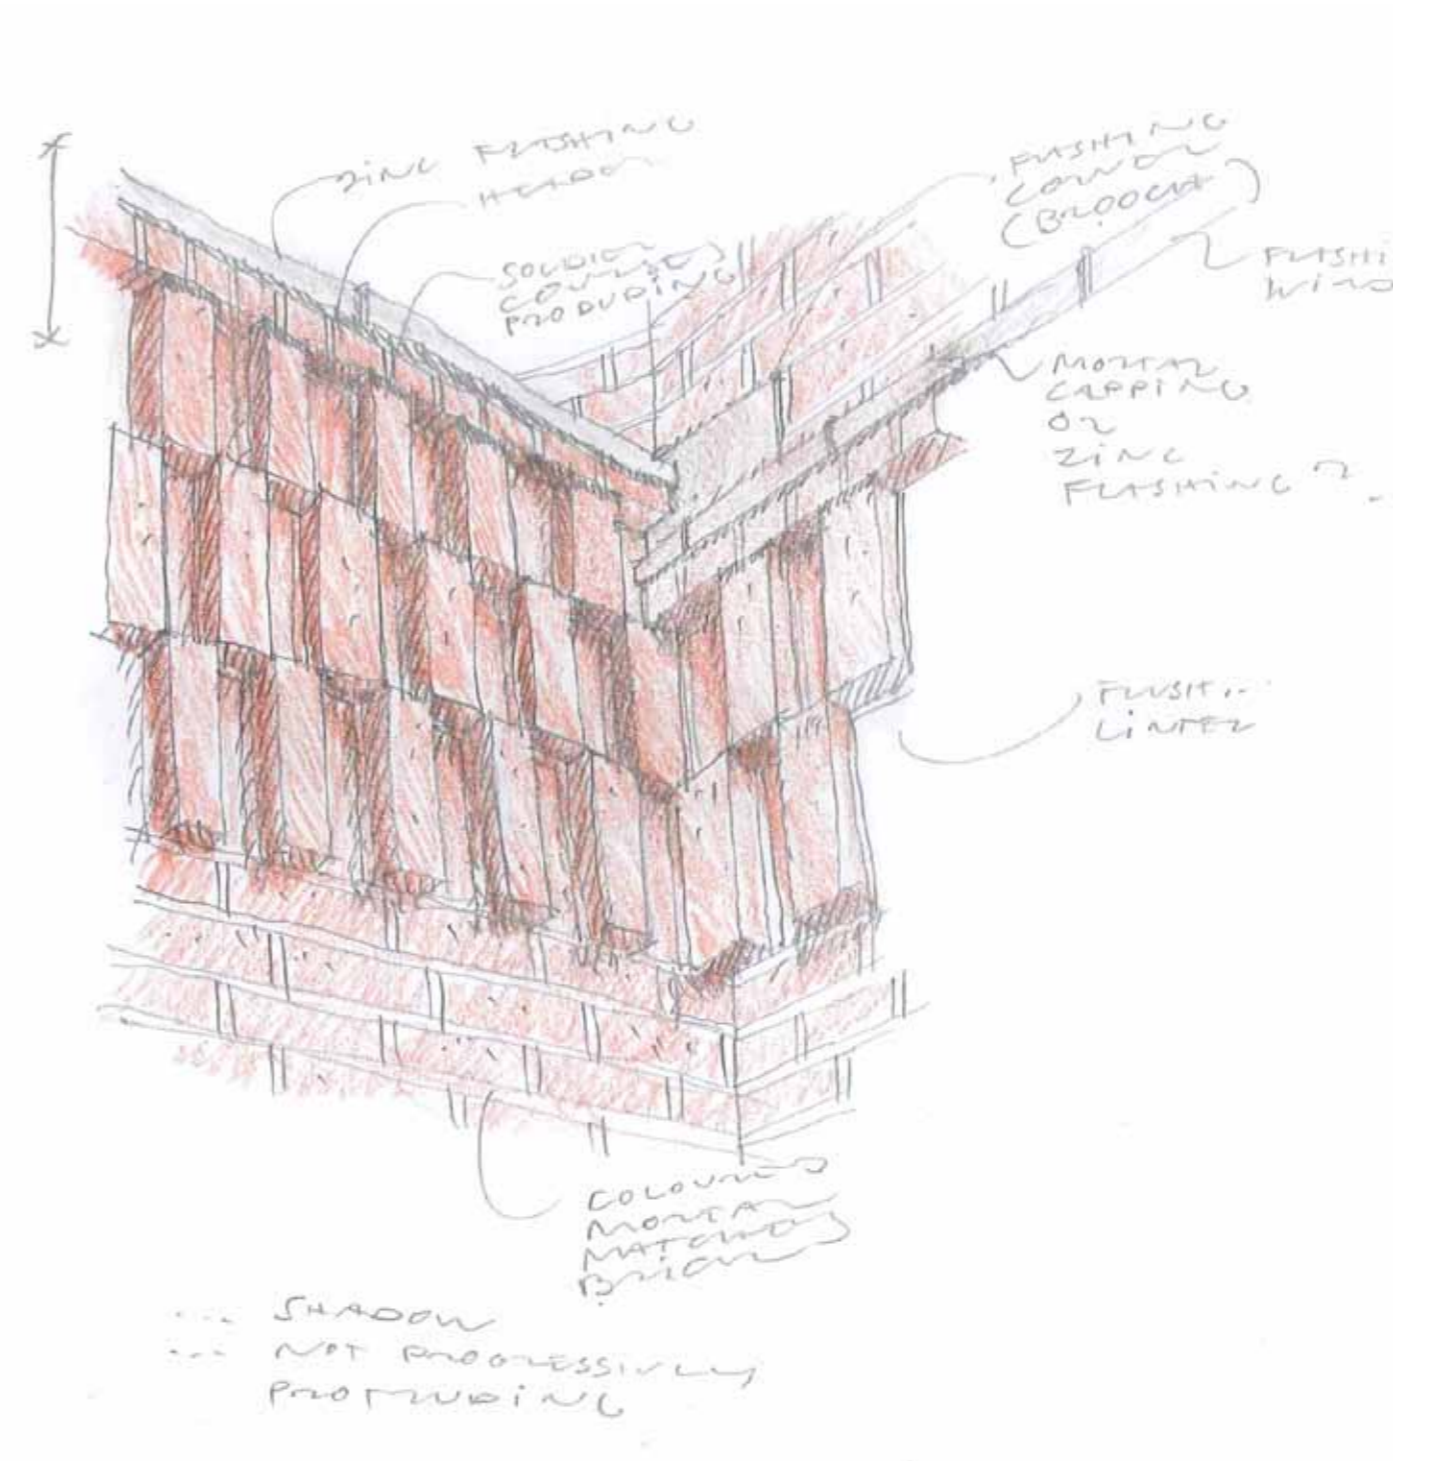 ZINC FLASHING
HEADER
SOLDIER
COURSE
PRODUDING
FLASHING
CORNER
(BROOCH)
FLASHI
MORTAR
CAPPING
OR
ZINC
FLASHING ?.
FLUSH...
LINTEL
COLOURED
MORTAR
MATCHES
BRICK
... SHADOW
... NOT PROGRESSIVELY
PROTRUDING